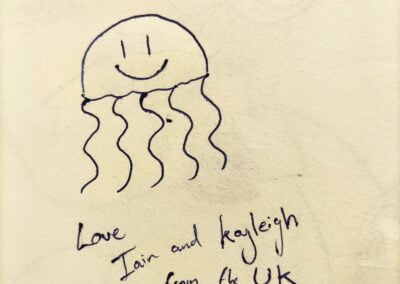 Love
Iain and Kayleigh
from the UK